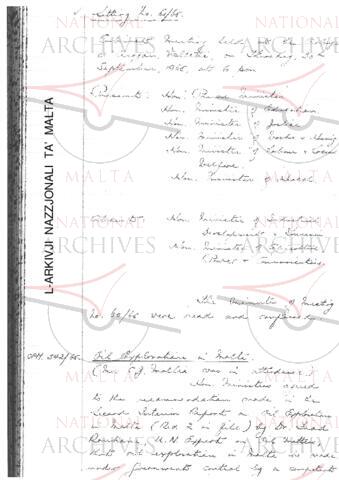 Sitting No. 61/65.
Cabinet Meeting held at the
Valletta, on Thursday, 30th
September, 1965, at 6 pm
Present: Hon. Prime Minister
Hon. Minister of Education
Hon. Minister of Justice
Hon. Minister of Works & Housing
Hon. Minister of Labour & Social
Welfare.
Hon. Minister of Health.
Absent: Hon. Minister of Industrial
Development & Tourism
Hon. Minister of
Power & Communications.
The Minutes of Meeting
No. 60/65 were read and confirmed.
OPM. 342/65. Oil Exploration in Malta.
(Mr. E.J. Mallia was in attendance.)
Hon. Ministers agreed
to the recommendation made in the
Second Interim Report on Oil Exploration
in Malta (Red 2 in file) by Dr.
U.N. Expert on Oil Matters,
that oil exploration in Malta be made
under Government control by a competent
L-ARKIVJI NAZZJONALI TA' MALTA
NATIONAL
ARCHIVES
NATIONAL
ARCHIVES
NATIONAL
ARCHIVES